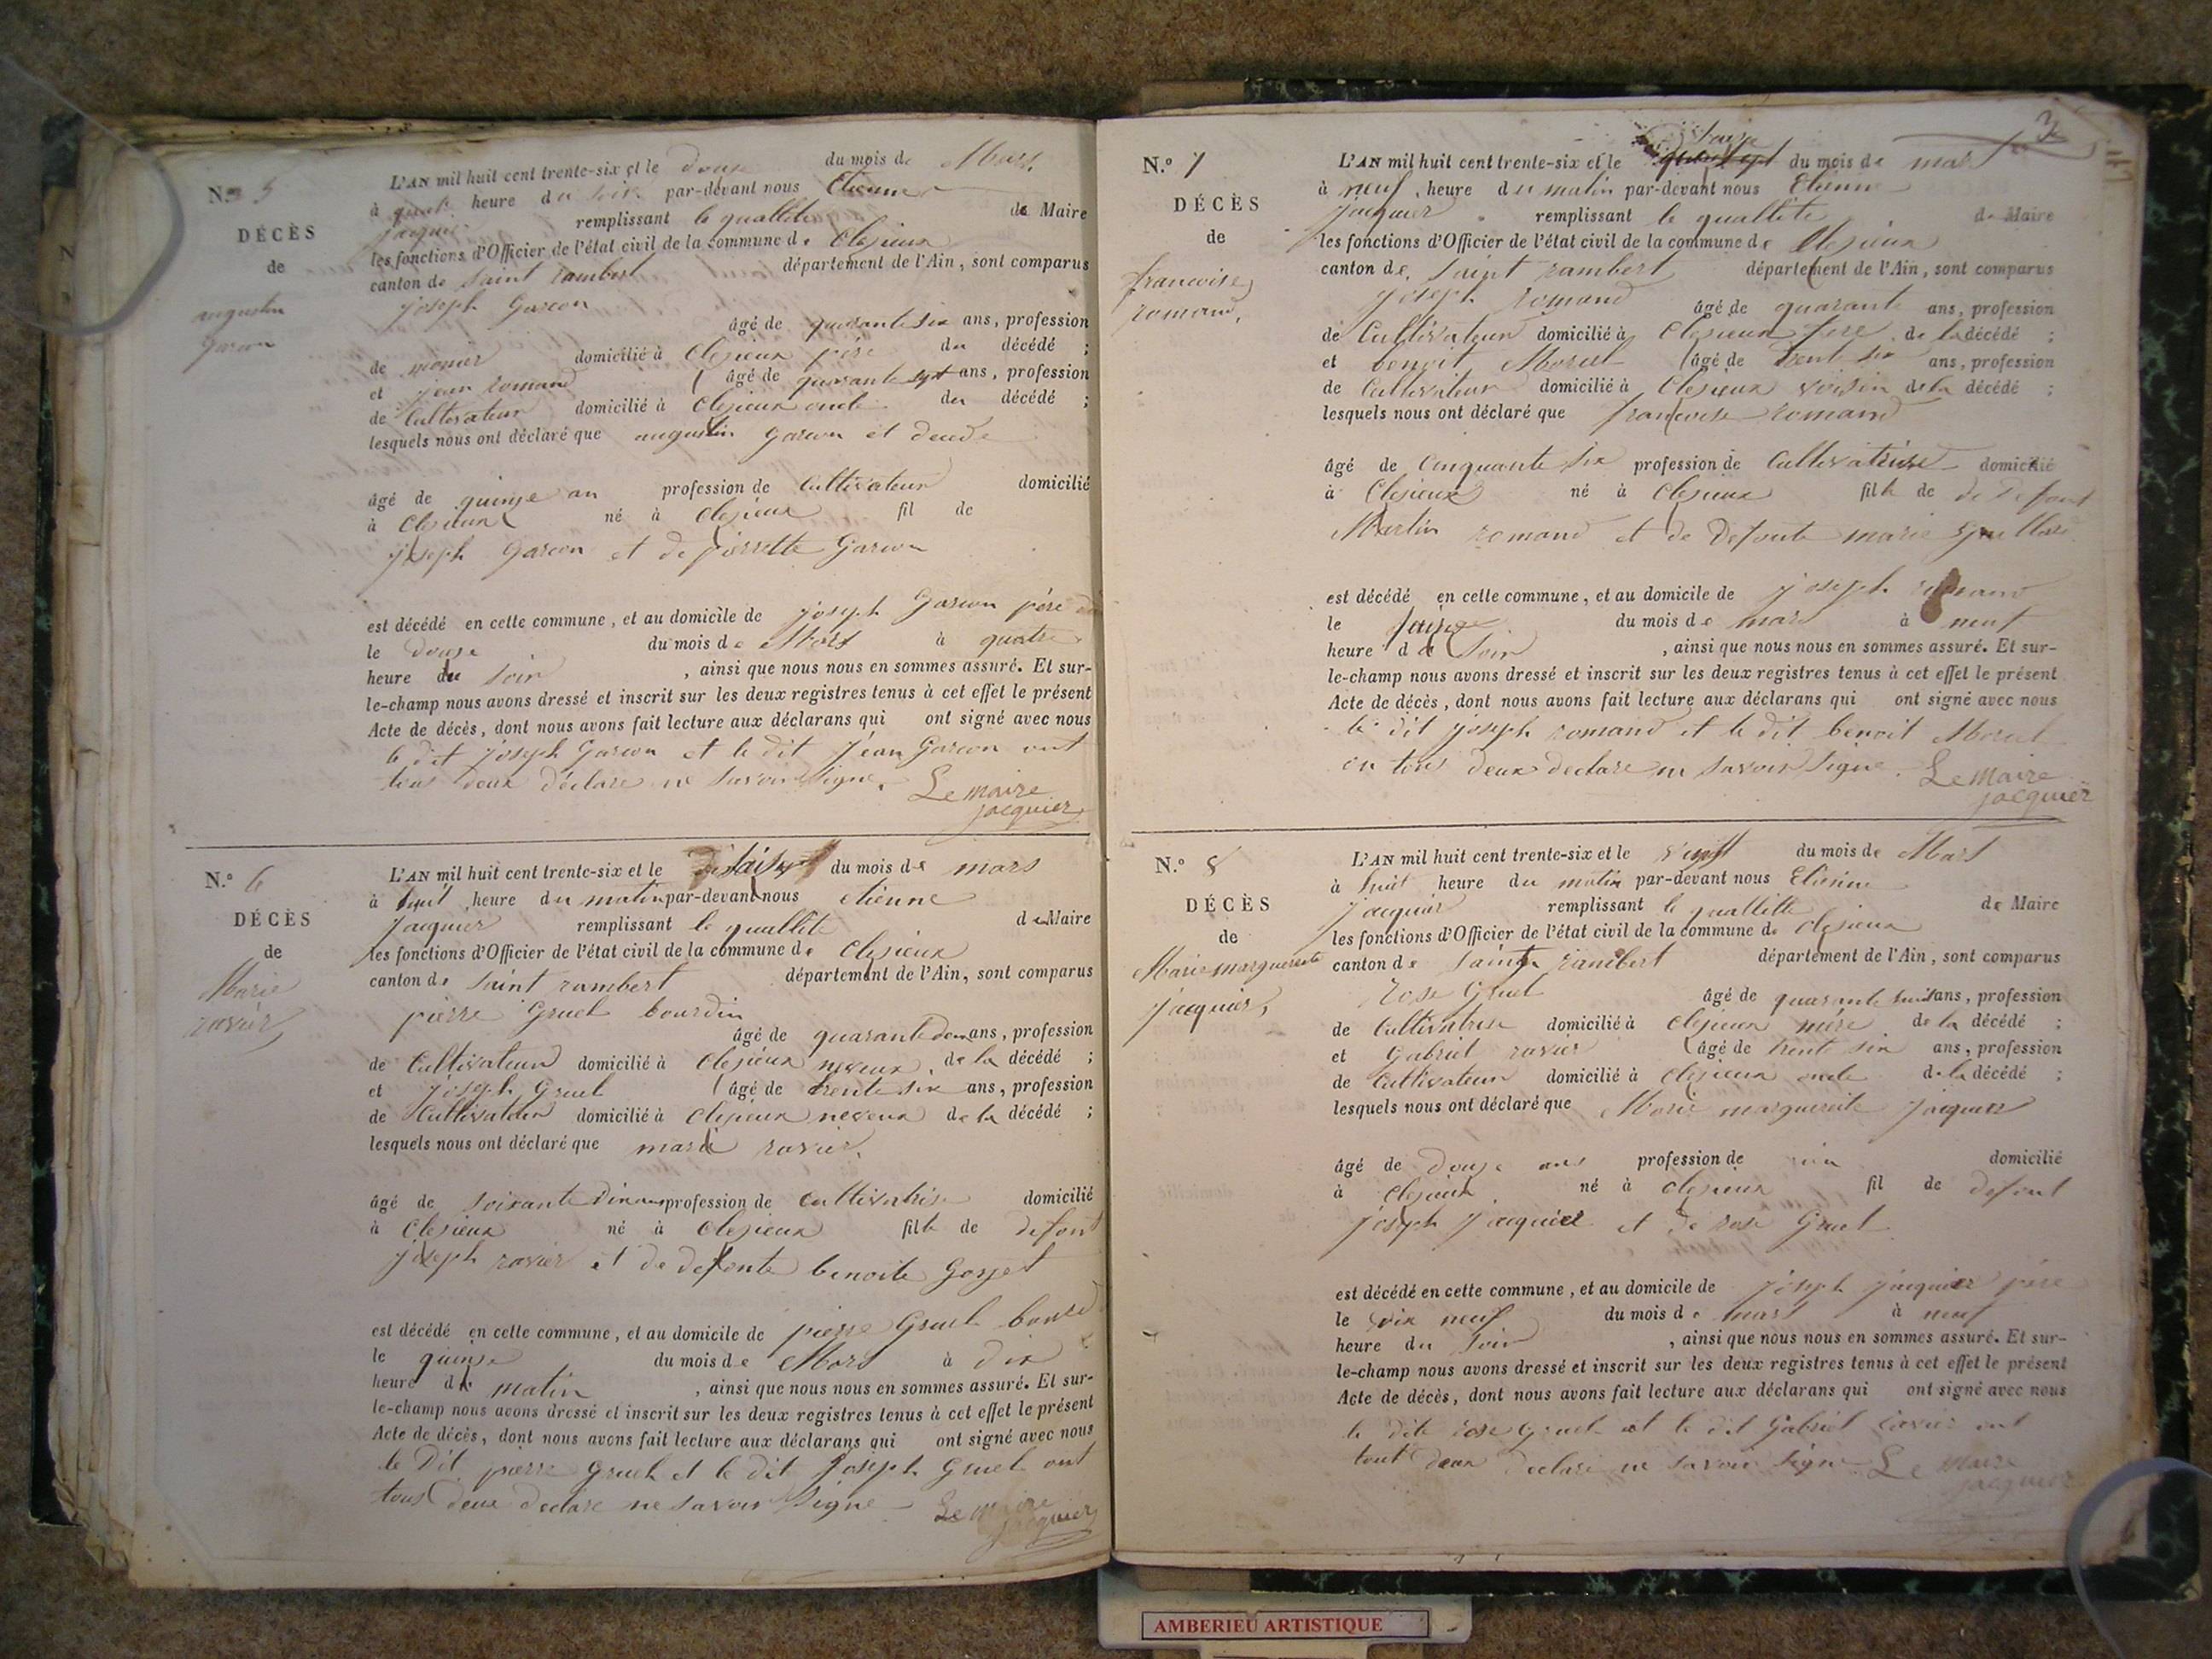 N.o 5
DÉCÈS
de
augustin
Garcon
L'AN mil huit cent trente-six et le douze du mois de Mars
à heure du soir par-devant nous Etienne
jacquier remplissant le quallite de Maire
les fonctions d'Officier de l'état civil de la commune de Clesieux
canton de Saint rambert département de l'Ain, sont comparus
joseph Garcon
âgé de quarante six ans, profession
de domicilié à Clesieux père du décédé ;
et jean romand âgé de quarante sept ans, profession
de Cultivateur domicilié à Clesieux oncle du décédé ;
lesquels nous ont déclaré que augustin garcon et
âgé de quinze an profession de Cultivateur domicilié
à Clesieux né à Clesieux fil de
joseph Garcon et de pierrette Garcon
est décédé en cette commune, et au domicile de joseph Garcon père
le douze du mois de Mars à quatre
heure du soir , ainsi que nous nous en sommes assuré. Et sur-
le-champ nous avons dressé et inscrit sur les deux registres tenus à cet effet le présent
Acte de décès, dont nous avons fait lecture aux déclarans qui ont signé avec nous
le dit joseph Garcon et le dit jean Garcon ont
tous deux declare ne savoir signe. Le maire
jacquier
N.o 6
DÉCÈS
de
Marie
ravier
L'AN mil huit cent trente-six et le du mois de mars
à huit heure du matin par-devant nous etienne
jacquier remplissant le quallite de Maire
les fonctions d'Officier de l'état civil de la commune de Clesieux
canton de saint rambert département de l'Ain, sont comparus
pierre Gruel bourdin
âgé de quarante deux ans, profession
de Cultivateur domicilié à Clesieux neveux de la décédé ;
et joseph Gruel âgé de trente six ans, profession
de Cultivateur domicilié à Clesieux neveux de la décédé ;
lesquels nous ont déclaré que marie ravier.
âgé de soixante profession de cultivatrise domicilié
à Clesieux né à Clesieux fille de defont
joseph ravier et de defonte benoite
est décédé en cette commune, et au domicile de pierre Gruel
le quinze du mois de Mars à dix
heure du matin , ainsi que nous nous en sommes assuré. Et sur-
le-champ nous avons dressé et inscrit sur les deux registres tenus à cet effet le présent
Acte de décès, dont nous avons fait lecture aux déclarans qui ont signé avec nous
le Dit pierre Gruel et le dit joseph Gruel ont
tous deux declare ne savoir signe Le maire
jacquier
3
N.o 7
DÉCÈS
de
francoise
romand,
L'AN mil huit cent trente-six et le du mois de mars
à neuf heure du matin par-devant nous Etienne
jacquier remplissant le quallite de Maire
les fonctions d'Officier de l'état civil de la commune de Clesieux
canton de Saint rambert département de l'Ain, sont comparus
joseph romand âgé de quarante ans, profession
de Cultivateur domicilié à Clesieux de la décédé ;
et benoit Morel âgé de trente six ans, profession
de Cultivateur domicilié à Clesieux voisin de la décédé ;
lesquels nous ont déclaré que francoise romand
âgé de Cinquante six profession de Cultivatrise domicilié
à Clesieux né à Clesieux fille de de defont
Martin romand et de Defonte marie
est décédé en cette commune, et au domicile de joseph romand
le du mois de mars à neuf
heure du soir , ainsi que nous nous en sommes assuré. Et sur-
le-champ nous avons dressé et inscrit sur les deux registres tenus à cet effet le présent
Acte de décès, dont nous avons fait lecture aux déclarans qui ont signé avec nous
le dit joseph romand et le dit benoit Morel
on tous deux declare ne savoir signe. Le Maire
jacquier
N.o 8
DÉCÈS
de
Marie marguerite
jacquier,
L'AN mil huit cent trente-six et le vingt du mois de Mars
à huit heure du matin par-devant nous Etienne
jacquier remplissant le quallitte de Maire
les fonctions d'Officier de l'état civil de la commune de clesieux
canton de saint rambert département de l'Ain, sont comparus
rose Gruel âgé de quarante huit ans, profession
de Cultivatrise domicilié à Clesieux mère de la décédé ;
et Gabriel ravier âgé de trente six ans, profession
de Cultivateur domicilié à Clesieux oncle de la décédé ;
lesquels nous ont déclaré que Marie marguerite jacquier
âgé de douze ans profession de domicilié
à Clesieux né à clesieux fil de defont
joseph jacquier et de rose Gruel
est décédé en cette commune, et au domicile de joseph jacquier père
le dix neuf du mois de mars à neuf
heure du soir , ainsi que nous nous en sommes assuré. Et sur-
le-champ nous avons dressé et inscrit sur les deux registres tenus à cet effet le présent
Acte de décès, dont nous avons fait lecture aux déclarans qui ont signé avec nous
la dite rose gruel et le dit Gabriel ravier ont
tout deux declare ne savoir signe Le maire
jacquier
AMBERIEU ARTISTIQUE